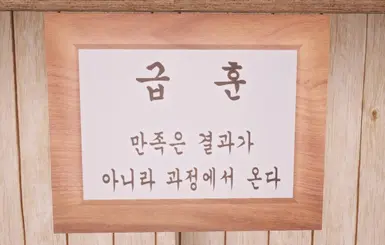 급 훈
만족은 결과가
아니라 과정에서 온다